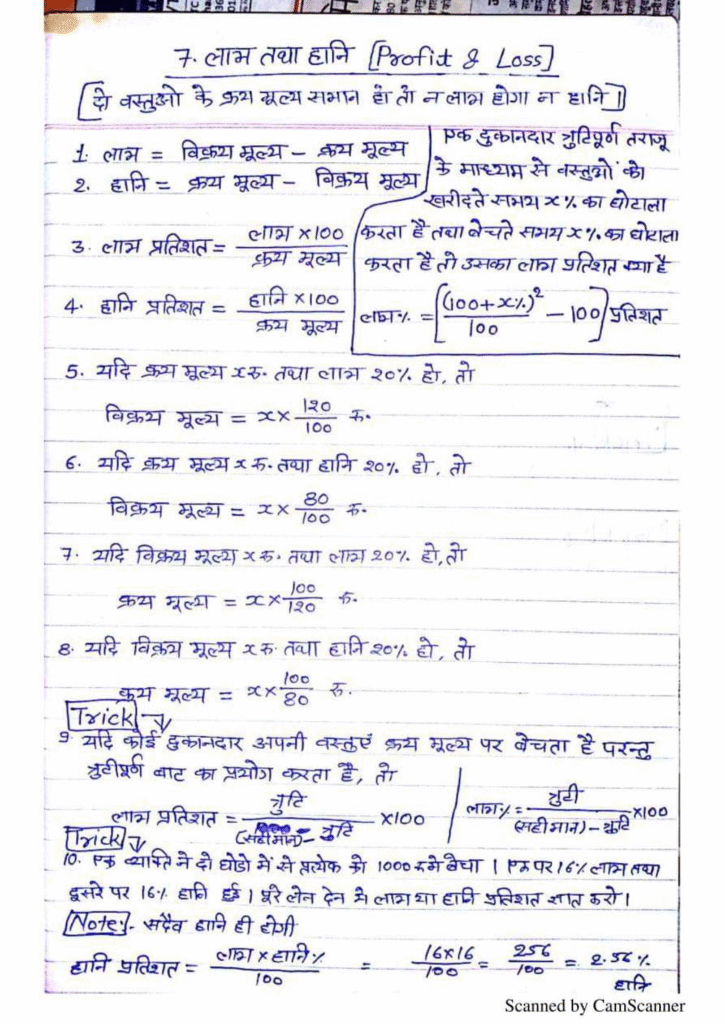 7. लाभ तथा हानि [Profit & Loss]
[दो वस्तुओ के क्रय मूल्य समान हों तो न लाभ होगा न हानि।]
1. लाभ = विक्रय मूल्य - क्रय मूल्य
2. हानि = क्रय मूल्य - विक्रय मूल्य
3. लाभ प्रतिशत = लाभ ×100 / क्रय मूल्य
4. हानि प्रतिशत = हानि ×100 / क्रय मूल्य
एक दुकानदार त्रुटिपूर्ण तराजू
के माध्यम से वस्तुओं को
खरीदते समय x% का घोटाला
करता है तथा बेचते समय x% का घोटाला
करता है तो उसका लाभ प्रतिशत क्या है
लाभ% = [(100+x%)² / 100 - 100] प्रतिशत
5. यदि क्रय मूल्य x रु. तथा लाभ 20% हो, तो
विक्रय मूल्य = x × 120/100 रु.
6. यदि क्रय मूल्य x रु. तथा हानि 20% हो, तो
विक्रय मूल्य = x × 80/100 रु.
7. यदि विक्रय मूल्य x रु. तथा लाभ 20% हो, तो
क्रय मूल्य = x × 100/120 रु.
8. यदि विक्रय मूल्य x रु. तथा हानि 20% हो, तो
क्रय मूल्य = x × 100/80 रु.
Trick
9. यदि कोई दुकानदार अपनी वस्तुएं क्रय मूल्य पर बेचता है परन्तु
त्रुटीपूर्ण बाट का प्रयोग करता है, तो
लाभ प्रतिशत = त्रुटि / (सहीमान) - त्रुटि ×100
लाभ% = त्रुटी / (सहीमान) - त्रुटि ×100
Trick
10. एक व्यक्ति ने दो घोडो में से प्रत्येक को 1000 रु में बेचा। एक पर 16% लाभ तथा
दूसरे पर 16% हानि हुई। पूरे लेन देन में लाभ या हानि प्रतिशत ज्ञात करो।
Note:- सदैव हानि ही होगी
हानि प्रतिशत = लाभ × हानि% / 100 = 16×16 / 100 = 256 / 100 = 2.56%
हानि
Scanned by CamScanner